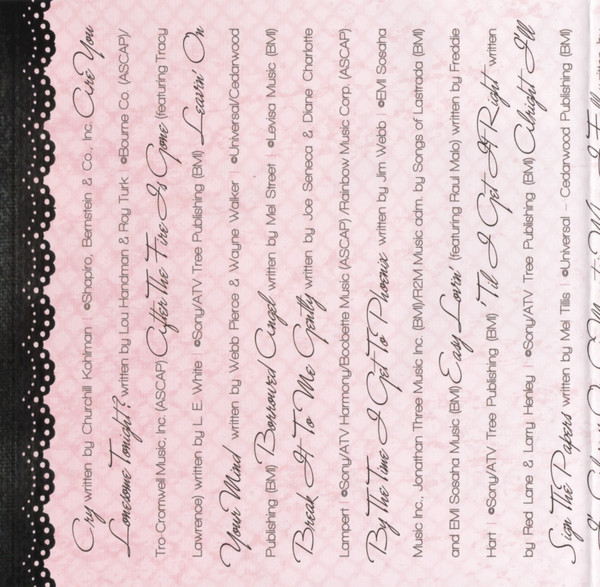 Cry written by Churchill Kohlman | ©Shapiro, Bernstein & Co., Inc. Are You
Lonesome Tonight? written by Lou Handman & Roy Turk | ©Bourne Co. (ASCAP)/
Tro-Cromwell Music, Inc. (ASCAP) After The Fire Is Gone (featuring Tracy
Lawrence) written by L. E. White | ©Sony/ATV Tree Publishing (BMI) Leavin' On
Your Mind written by Webb Pierce & Wayne Walker | ©Universal/Cedarwood
Publishing (BMI) Borrowed Angel written by Mel Street | ©Levisa Music (BMI)
Break It To Me Gently written by Joe Seneca & Diane Charlotte
Lampert | ©Sony/ATV Harmony/Bobette Music (ASCAP) /Rainbow Music Corp. (ASCAP)
By The Time I Get To Phoenix written by Jim Webb | ©EMI Sosaha
Music Inc., Jonathan Three Music Inc. (BMI)/R2M Music adm. by Songs of Lastrada (BMI)
and EMI Sosaha Music (BMI) Easy Lovin' (featuring Raul Malo) written by Freddie
Hart | ©Sony/ATV Tree Publishing (BMI) 'Til I Get It Right written
by Red Lane & Larry Henley | ©Sony/ATV Tree Publishing (BMI) Alright I'll
Sign The Papers written by Mel Tillis | ©Universal – Cedarwood Publishing (BMI)